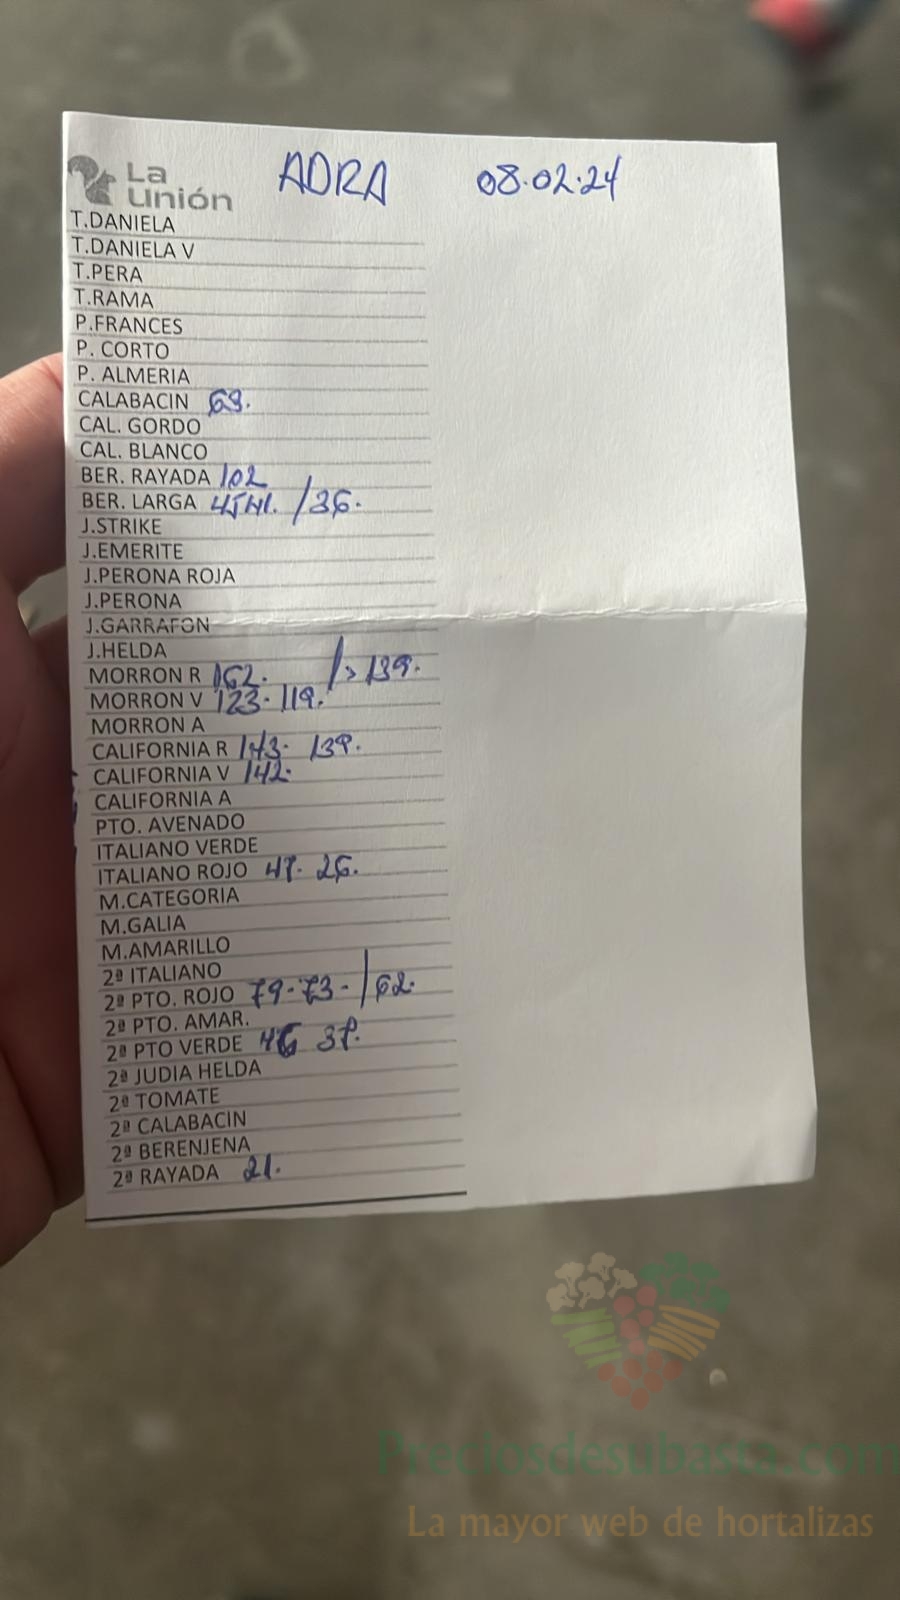 La Unión ADRA 08.02.24
T.DANIELA
T.DANIELA V
T.PERA
T.RAMA
P.FRANCES
P. CORTO
P. ALMERIA
CALABACIN 69.
CAL. GORDO
CAL. BLANCO
BER. RAYADA 102
BER. LARGA /36.
J.STRIKE
J.EMERITE
J.PERONA ROJA
J.PERONA
J.GARRAFON
J.HELDA
MORRON R 162. /> 139.
MORRON V 123. 119.
MORRON A
CALIFORNIA R 143. 139.
CALIFORNIA V 142.
CALIFORNIA A
PTO. AVENADO
ITALIANO VERDE
ITALIANO ROJO 26.
M.CATEGORIA
M.GALIA
M.AMARILLO
2ª ITALIANO
2ª PTO. ROJO 79.73-/62.
2ª PTO. AMAR.
2ª PTO VERDE
2ª JUDIA HELDA
2ª TOMATE
2ª CALABACIN
2ª BERENJENA
2ª RAYADA 21.
Preciosdesubasta.com
La mayor web de hortalizas